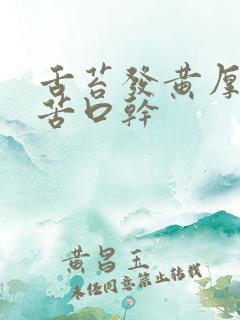 舌苔發黃厚
苦口幹
黃昌玉
未經同意禁止轉載